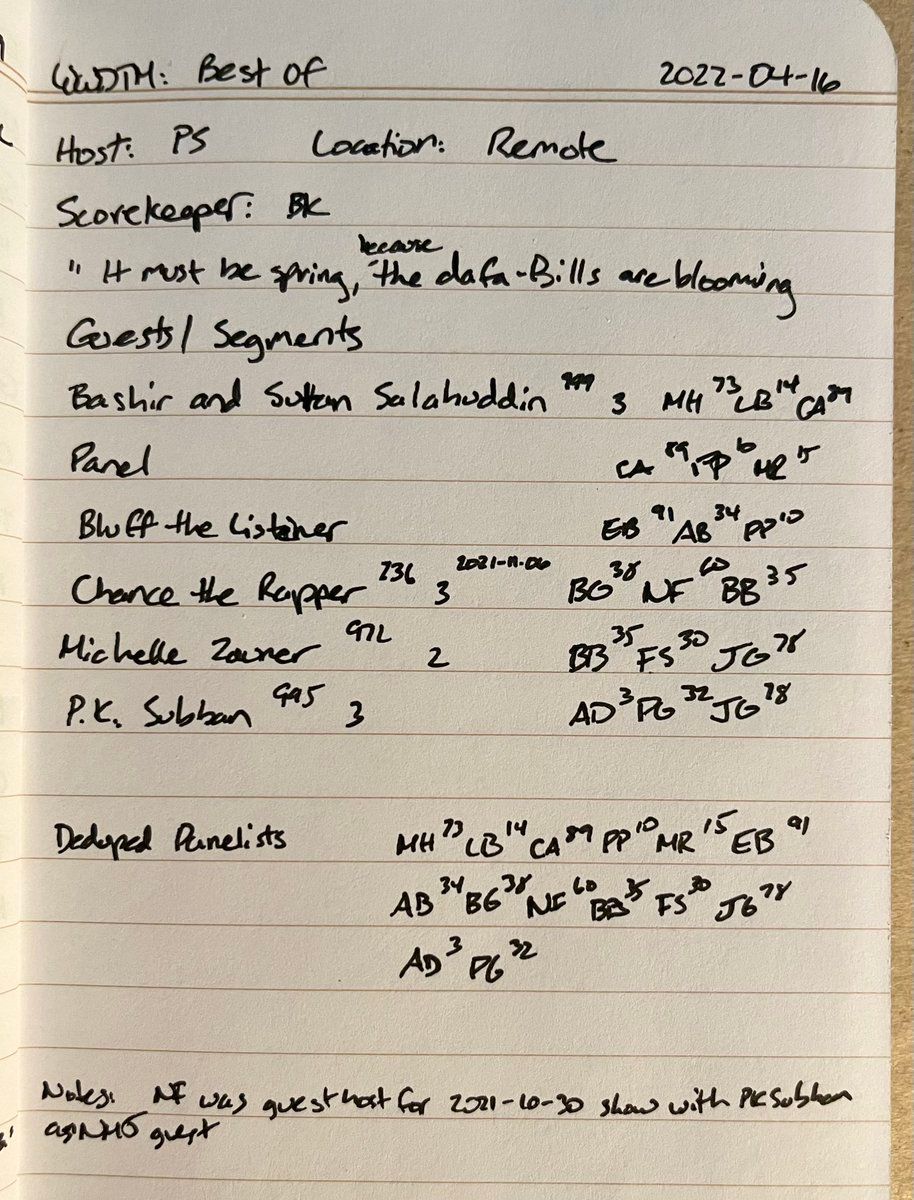 WWDTM: Best Of 2022-04-16
Host: PS Location: Remote
Scorekeeper: BK
because
" It must be spring, the dafa-Bills are blooming
Guests/ Segments
Bashir and Sultan Salahuddin 999 3 MH 73 LB 14 CA 89
Panel CA 89 PP 10 MR 15
Bluff the Listener EB 91 AB 34 PP 10
Chance the Rapper 236 3 2021-11-06 BG 38 NF 60 BB 35
Michelle Zauner 972 2 BB 35 FS 30 JG 78
P.K. Subban 995 3 AD 3 PG 32 JG 78
Deduped Panelists MH 73 LB 14 CA 89 PP 10 MR 15 EB 91
AB 34 BG 38 NF 60 BB 35 FS 30 JG 78
AD 3 PG 32
Notes: NF was guest host for 2021-10-30 show with PK Subban
as NMJ guest